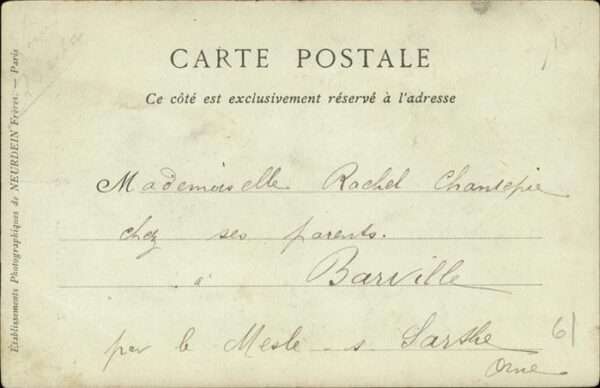 CARTE POSTALE
Ce côté est exclusivement réservé à l'adresse
Mademoiselle Rachel Chantepie
chez ses parents.
à Barville
par le Mesle s Sarthe
Orne
61
Établissements Photographiques de NEURDEIN Frères. — Paris